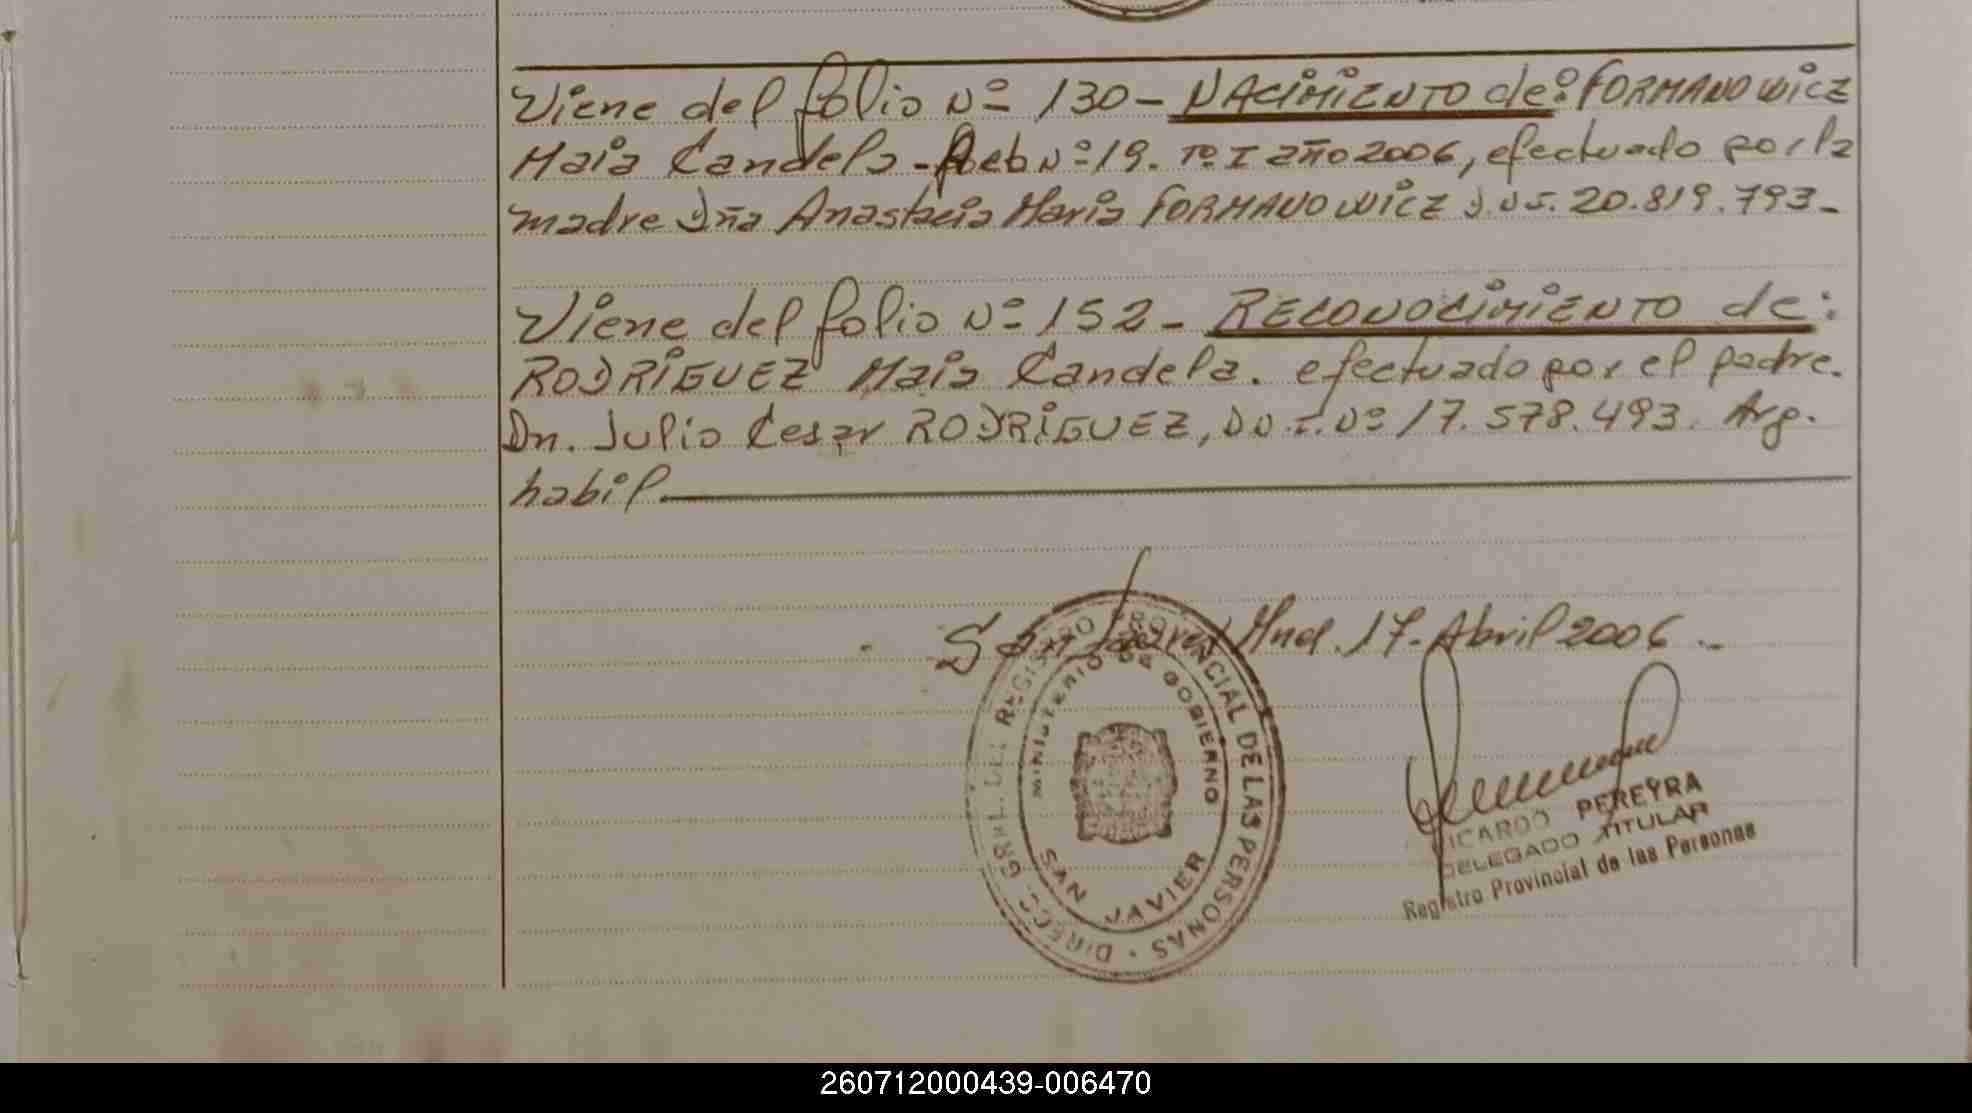 Viene del folio Nº 130 - NACIMIENTO de: FORMANOWICZ
Maia Candela - Acta Nº 19. Tº I año 2006, efectuado por la
madre Dña Anastacia Maria FORMANOWICZ D.N.I. 20.819.793 -
Viene del folio Nº 152 - RECONOCIMIENTO de:
RODRIGUEZ Maia Candela. efectuado por el padre.
Dn. Julio Cesar RODRIGUEZ, D.N.I. Nº 17.578.493. Arg.
habil.
San Javier, Mnes. 17. Abril 2006 -
DIRECC. GRAL. DEL REGISTRO PROVINCIAL DE LAS PERSONAS
MINISTERIO DE GOBIERNO
SAN JAVIER
RICARDO PEREYRA
DELEGADO TITULAR
Registro Provincial de las Personas
260712000439-006470